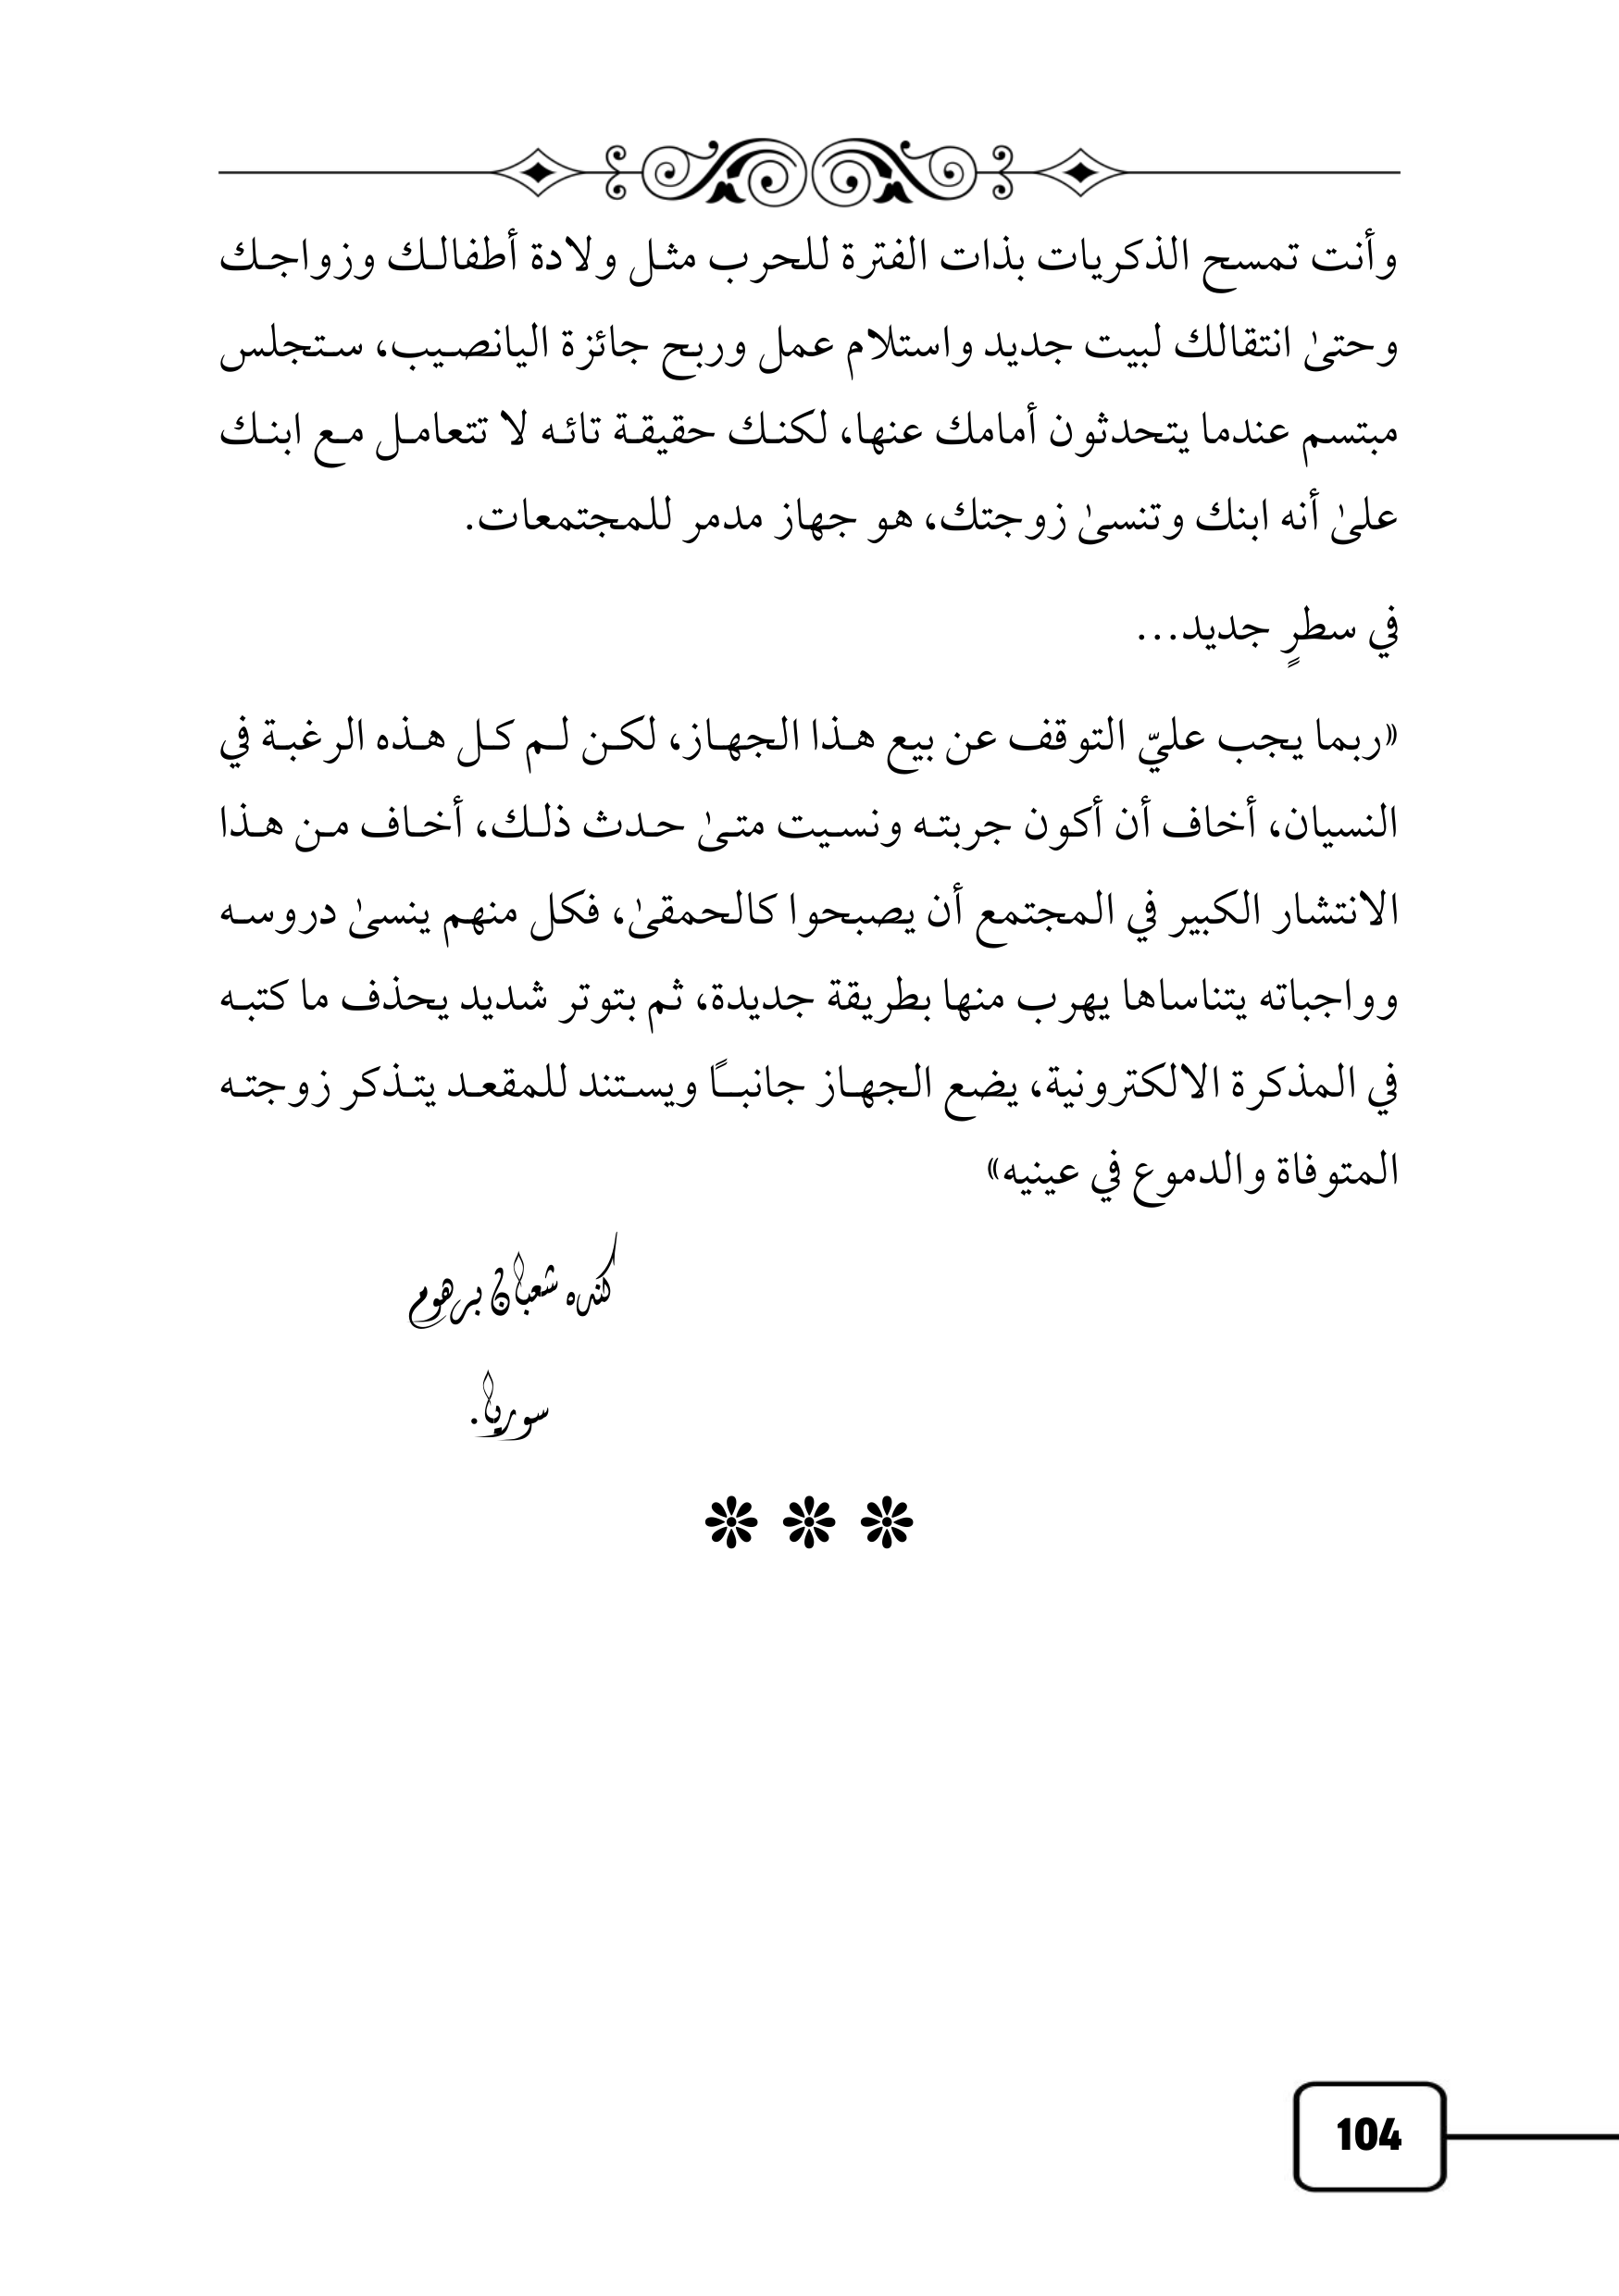 وأنت تمسح الذكريات بذات الفترة للحرب مثل ولادة أطفالك وزواجك
وحتىٰ انتقالك لبيت جديد واستلام عمل وربح جائزة اليانصيب، ستجلس
مبتسم عندما يتحدثون أمامك عنها، لكنك حقيقة تائه لا تتعامل مع ابنك
علىٰ أنه ابنك وتنسىٰ زوجتك، هو جهاز مدمر للمجتمعات.
في سطرٍ جديد...
«ربما يجب عليّ التوقف عن بيع هذا الجهاز، لكن لم كل هذه الرغبة في
النسيان، أخاف أن أكون جربته ونسيت متىٰ حدث ذلك، أخاف من هذا
الانتشار الكبير في المجتمع أن يصبحوا كالحمقىٰ، فكل منهم ينسىٰ دروسه
وواجباته يتناساها يهرب منها بطريقة جديدة، ثم بتوتر شديد يحذف ما كتبه
في المذكرة الالكترونية، يضع الجهاز جانبًا ويستند للمقعد يتذكر زوجته
المتوفاة والدموع في عينيه»
كنده شعبان برهوم
سوريا.
104